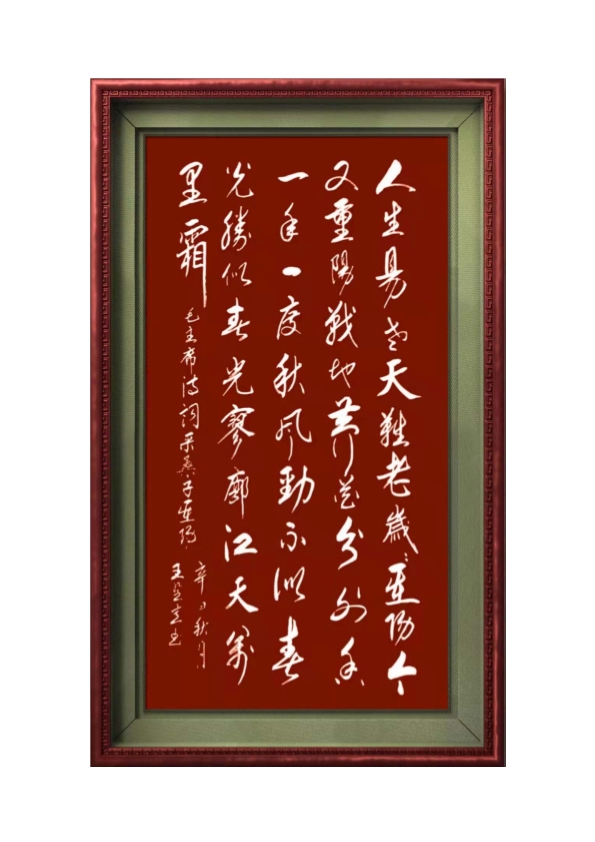 人生易老天難老歲〻重阳今
又重陽戰地黄花分外香
一年一度秋风勁不似春
光勝似春光寥廓江天萬
里霜
毛主席诗詞采桑子重阳
辛丑秋月